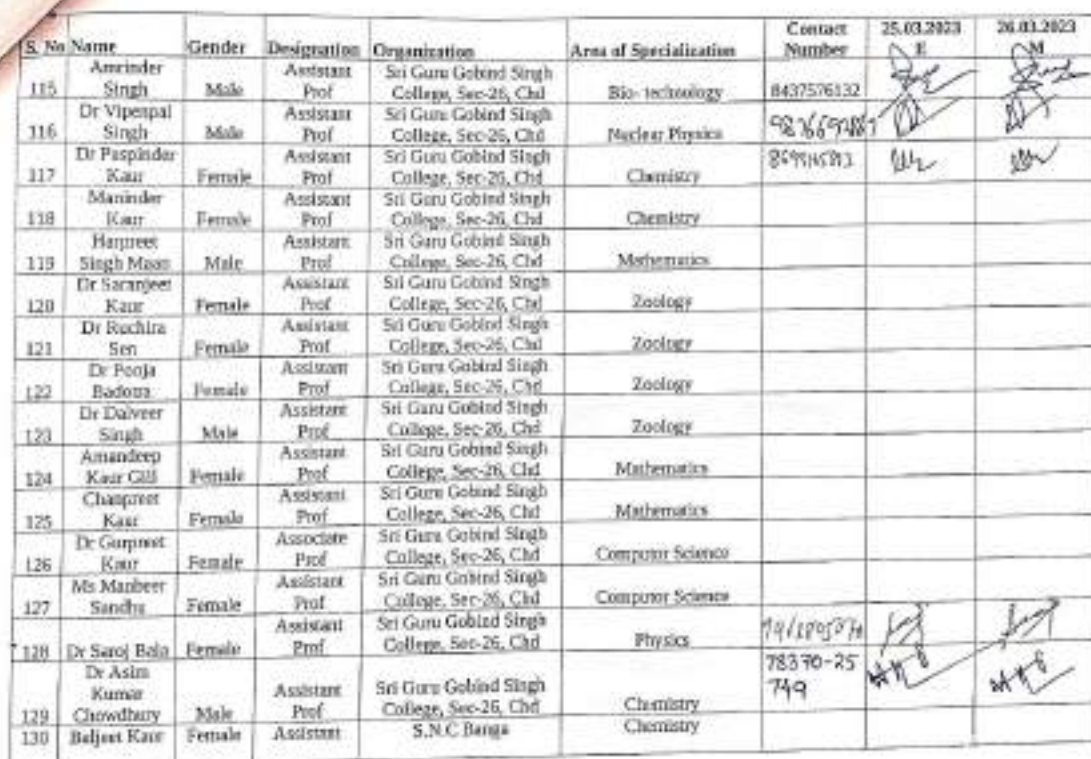 S. No Name Gender Designation Organization Area of Specialization Contact Number 25.03.2023 E 26.03.2023 M
115 Amrinder Singh Male Assistant Prof Sri Guru Gobind Singh College, Sec-26, Chd Bio- technology 8437576132
116 Dr Vipenpal Singh Male Assistant Prof Sri Guru Gobind Singh College, Sec-26, Chd Nuclear Physics
117 Dr Puspinder Kaur Female Assistant Prof Sri Guru Gobind Singh College, Sec-26, Chd Chemistry
118 Maninder Kaur Female Assistant Prof Sri Guru Gobind Singh College, Sec-26, Chd Chemistry
119 Harpreet Singh Maan Male Assistant Prof Sri Guru Gobind Singh College, Sec-26, Chd Mathematics
120 Dr Saranjeet Kaur Female Assistant Prof Sri Guru Gobind Singh College, Sec-26, Chd Zoology
121 Dr Ruchira Sen Female Assistant Prof Sri Guru Gobind Singh College, Sec-26, Chd Zoology
122 Dr Pooja Badotra Female Assistant Prof Sri Guru Gobind Singh College, Sec-26, Chd Zoology
123 Dr Dalveer Singh Male Assistant Prof Sri Guru Gobind Singh College, Sec-26, Chd Zoology
124 Amandeep Kaur Gill Female Assistant Prof Sri Guru Gobind Singh College, Sec-26, Chd Mathematics
125 Chanpreet Kaur Female Assistant Prof Sri Guru Gobind Singh College, Sec-26, Chd Mathematics
126 Dr Gurpreet Kaur Female Associate Prof Sri Guru Gobind Singh College, Sec-26, Chd Computor Science
127 Ms Manbeer Sandhu Female Assistant Prof Sri Guru Gobind Singh College, Sec-26, Chd Computor Science
128 Dr Saroj Bala Female Assistant Prof Sri Guru Gobind Singh College, Sec-26, Chd Physics
129 Dr Asim Kumar Chowdhury Male Assistant Prof Sri Guru Gobind Singh College, Sec-26, Chd Chemistry 78370-25 749
130 Baljeet Kaur Female Assistant S.N.C Banga Chemistry